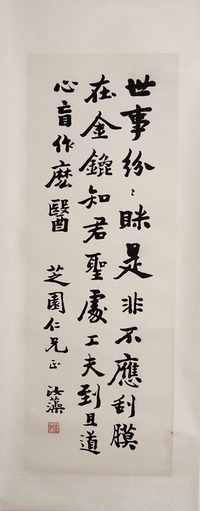 世事紛〻昧是非不應刮膜
在金鎞知君聖處工夫到且道
心盲作麽醫
芝園仁兄正
汝藻